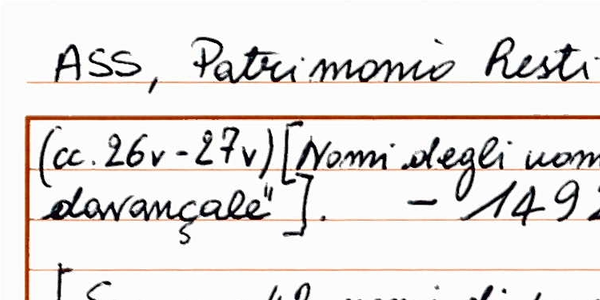 ASS, Patrimonio Resti
(cc. 26v-27v) [Nomi degli uom
davançale"]. - 1492